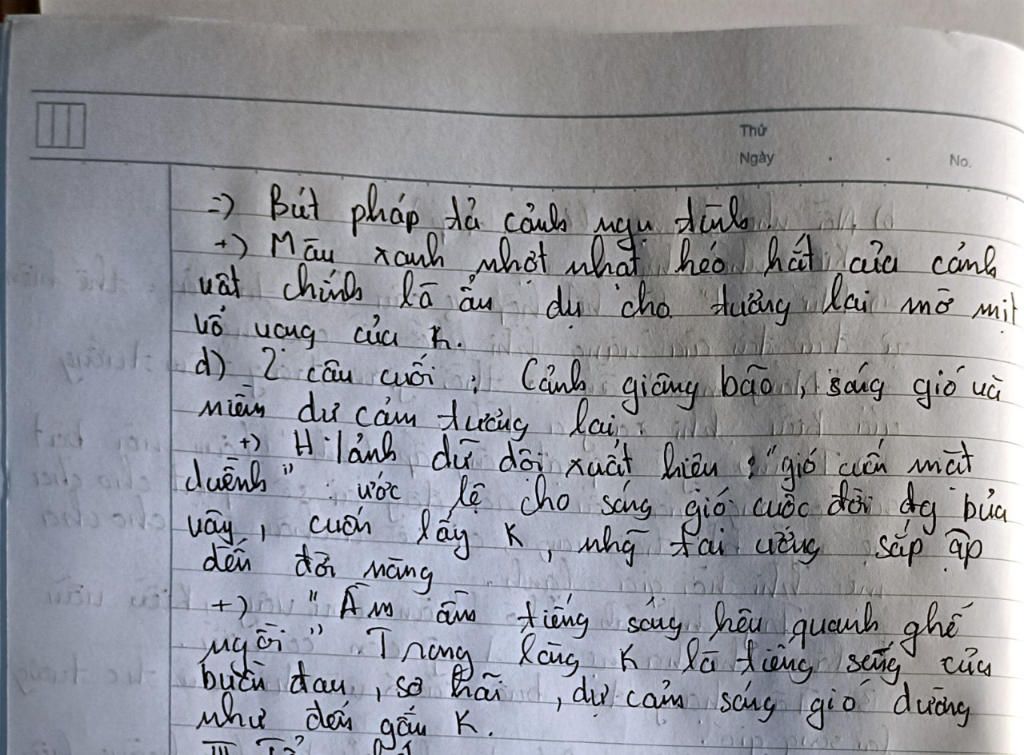 Thứ
Ngày . . No.
=> Bút pháp tả cảnh ngụ tình.
+) Màu xanh nhợt nhạt héo hắt của cảnh
vật chính là ẩn dụ cho tương lai mờ mịt
vô vọng của K.
d) 2 câu cuối : Cảnh giông bão, sóng gió và
niềm dự cảm tương lai
+) H/ảnh dữ dội xuất hiện : "gió cuốn mặt
duềnh" ước lệ cho sóng gió cuộc đời đg bủa
vây, cuốn lấy K, nhg tai ương sắp ập
đến đời nàng
+) "Ầm ầm tiếng sóng kêu quanh ghế
ngồi" Trong lòng K là tiếng sóng của
buồn đau, sợ hãi, dự cảm sóng gió dường
như đến gần K.
III